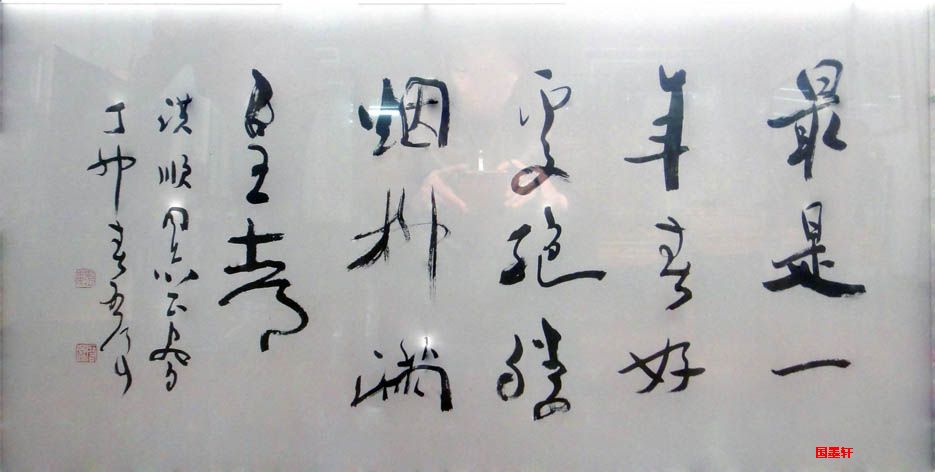 最是一
年春好
处绝胜
烟柳满
皇都
洪顺同志正腕
丁卯春
国墨轩